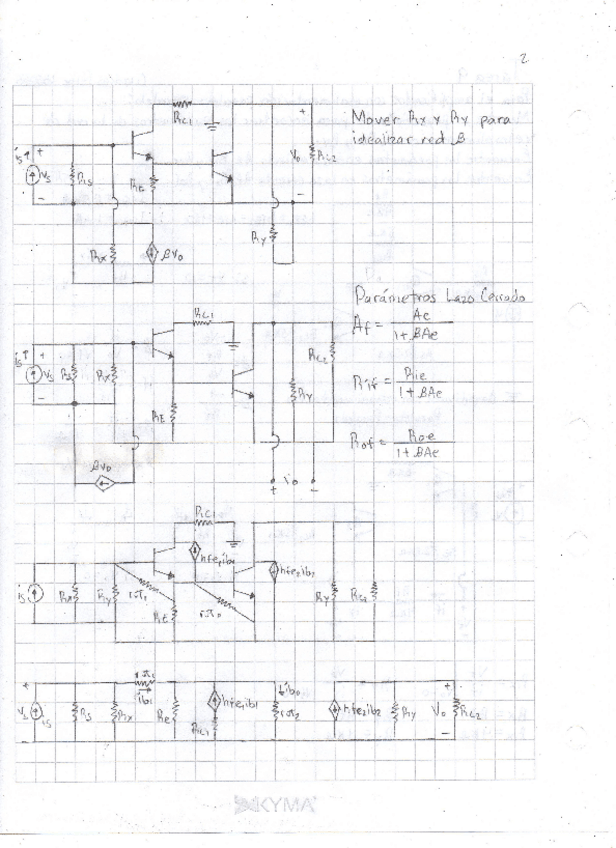 2
Mover Rx y Ry para
idealizar red β
Rc1
is
Vs
Rs
RE
Vo
RL2
Ry
Rx
βVo
Parámetros Lazo Cerrado
Af = Ae
1+βAe
Rif = Rie
1+βAe
Rof = Roe
1+βAe
Rc1
is
Vs
Rs
Rx
RE
Ry
βVo
+ Vo -
Rc1
hfe1ib1
hfe2ib2
is
rπ1
RE
Ry
rπ1
ib1
Vs
is
Rs
Rx
Re
hfe1ib1
Rc1
rπ2
hfe2ib2
Ry
Vo
KYMA